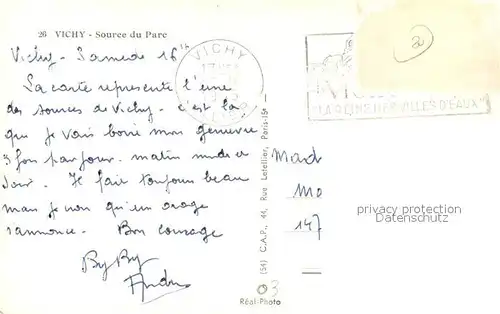 26 VICHY - Source du Parc
Vichy - Samedi 16h
La carte represente l'une
des sources de Vichy - c'est la
que je vais boire mon
3 fois par jour. matin midi et
soir. Il fait toujours beau
mais je un orage
s'annonce. Bon courage
By By
VICHY
"LA REINE DES VILLES D'EAUX"
2
(54) C.A.P., 44, Rue Letellier, Paris-15e
Mad
Mo
147
privacy protection
Datenschutz
3
Réal-Photo